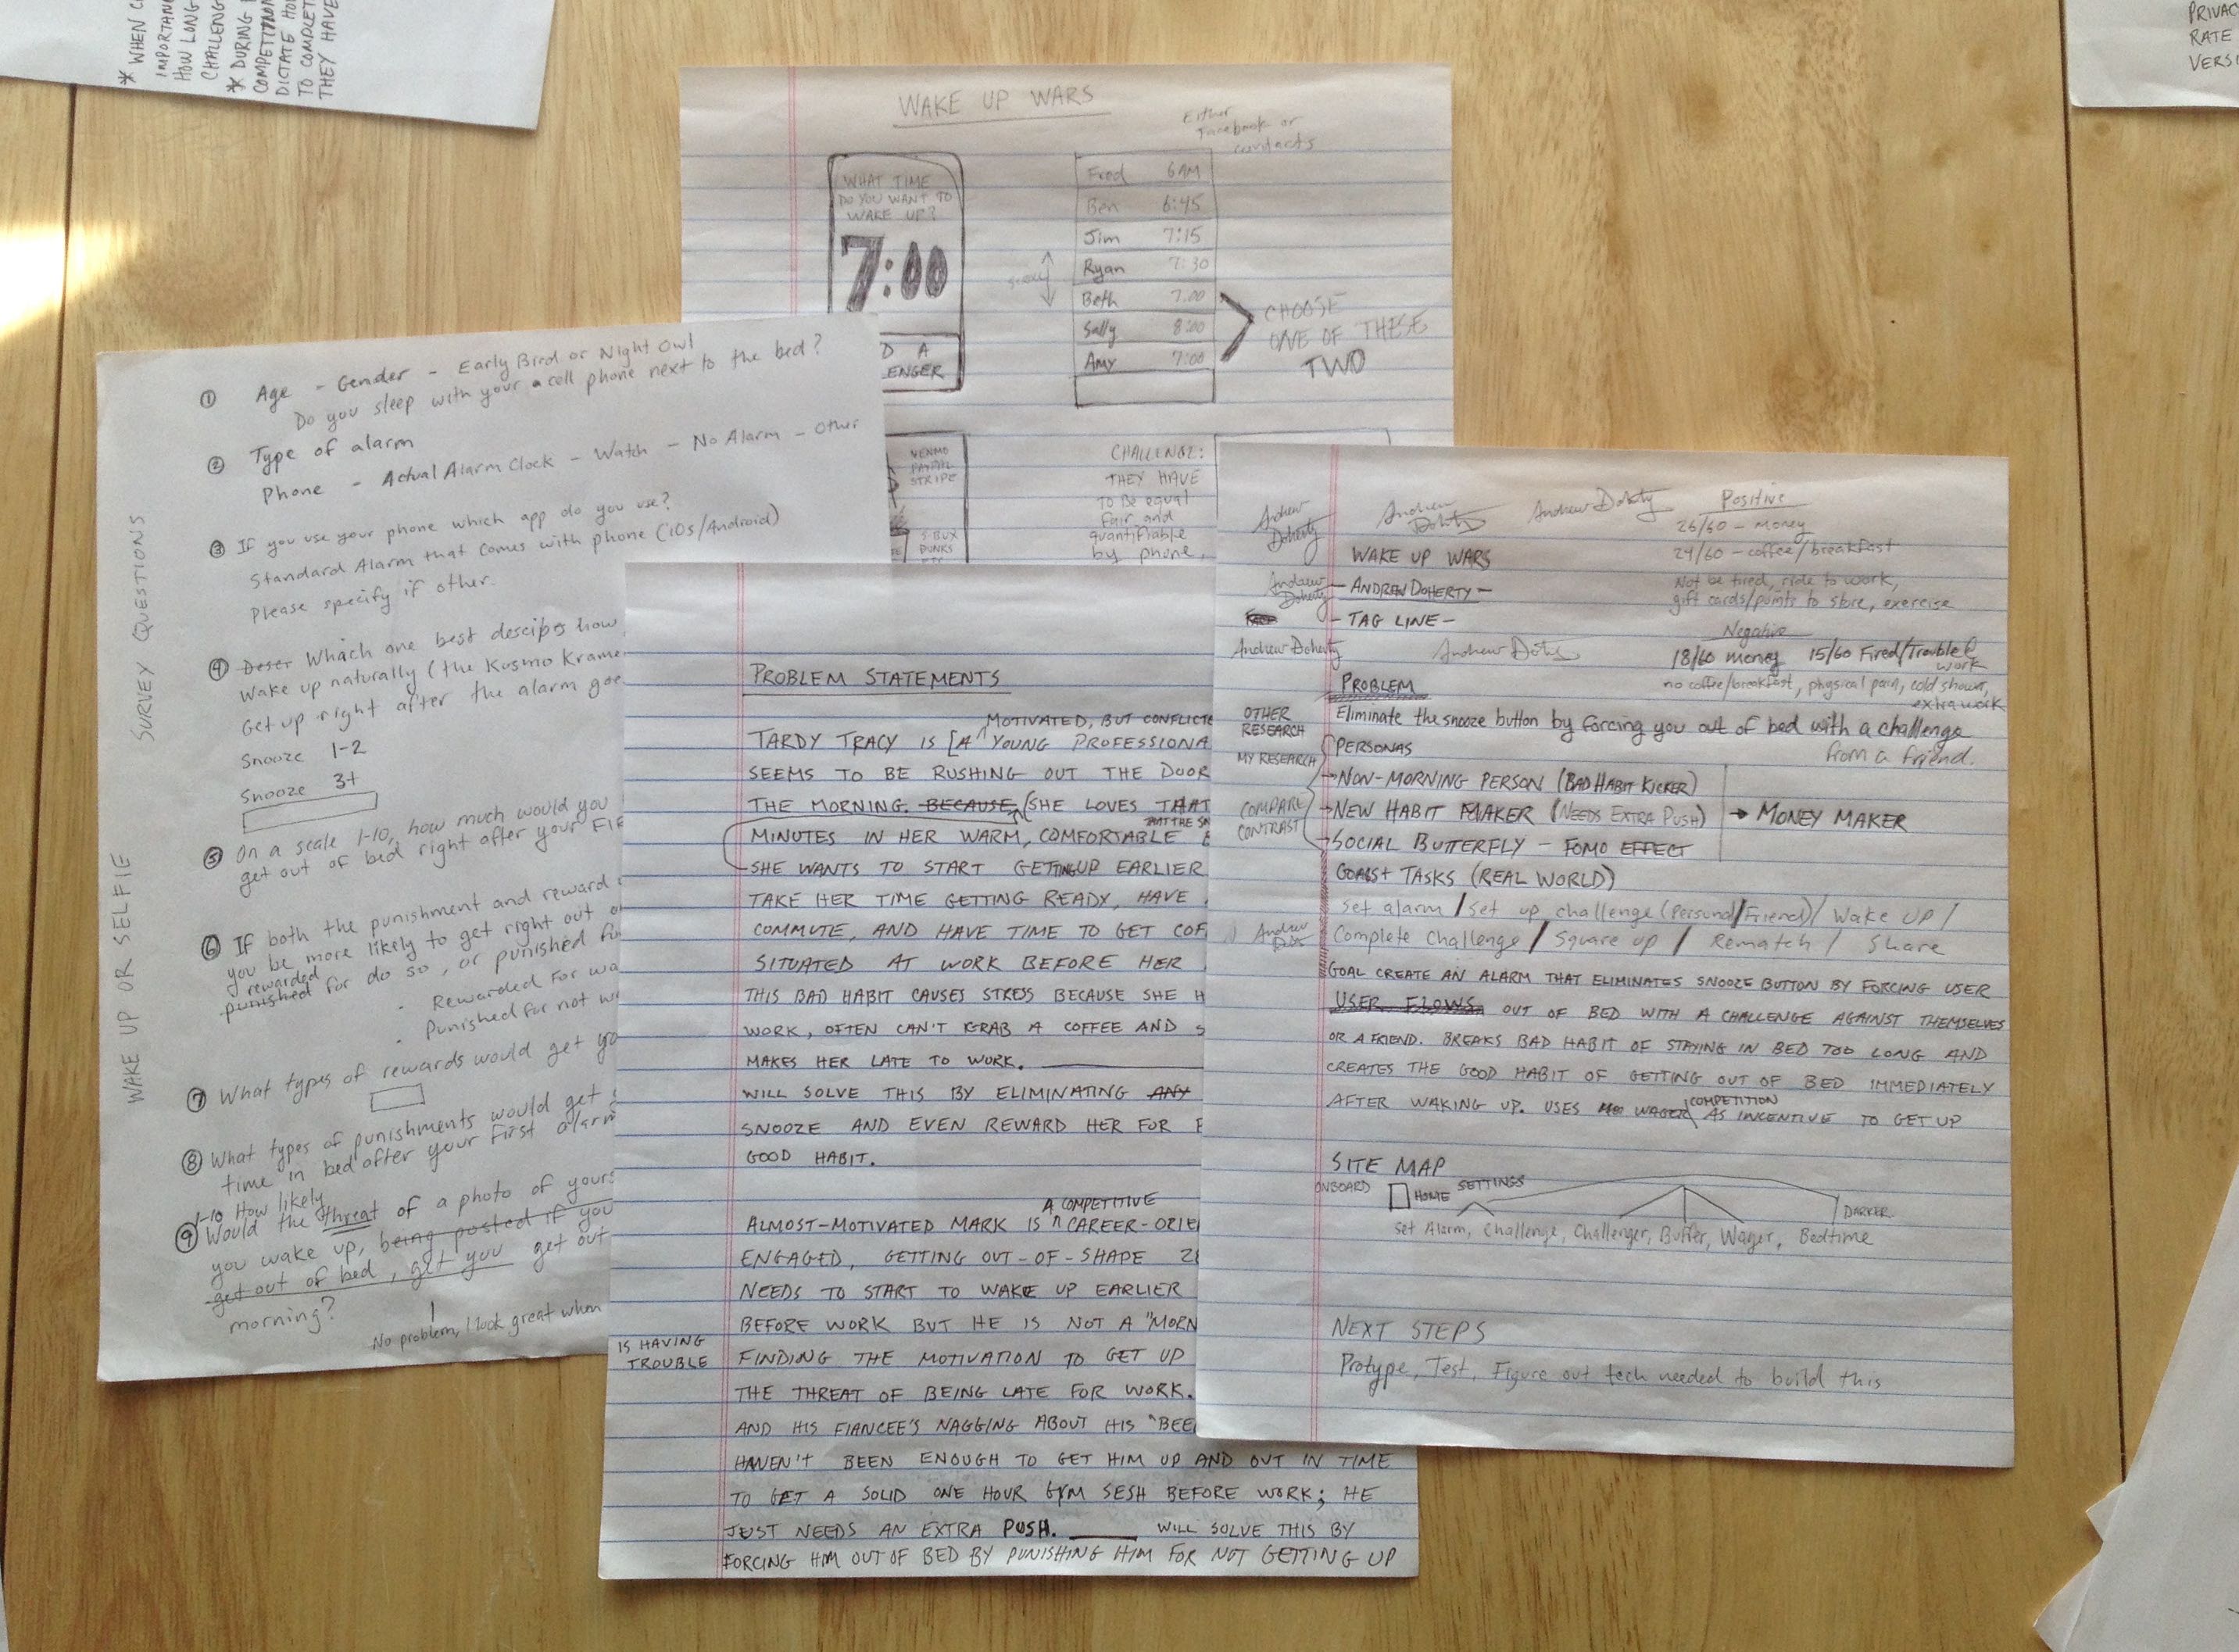 * WHEN C
IMPORTAN
HOW LONG
CHALLENG
* DURING
COMPETITION
DICTATE HO
TO COMPLET
THEY HAVE
PRIVAC
RATE
VERSI
WAKE UP WARS
Either
Facebook or
contacts
WHAT TIME
DO YOU WANT TO
WAKE UP?
7:00
D A
ENGER
Fred 6AM
Ben 6:45
Jim 7:15
Ryan 7:30
Beth 7:00
Sally 8:00
Amy 7:00
CHOOSE
ONE OF THESE
TWO
VENMO
PAYPAL
STRIPE
S-BUX
DUNKS
CHALLENGE:
THEY HAVE
TO BE equal
Fair and
quantifiable
by phone,
WAKE UP OR SELFIE SURVEY QUESTIONS
① Age - Gender - Early Bird or Night Owl
Do you sleep with your a cell phone next to the bed?
② Type of alarm
Phone - Actual Alarm Clock - Watch - No Alarm - Other
③ If you use your phone which app do you use?
Standard Alarm that comes with phone (iOs/Android)
Please specify if other.
④ Deser Which one best descibes how
Wake up naturally (the Kosmo Krame
Get up right after the alarm goe
Snooze 1-2
Snooze 3+
⑤ On a scale 1-10, how much would you
get out of bed right after your FIR
⑥ If both the punishment and reward
you be more likely to get right out o
rewarded
punished for do so, or punished for
- Rewarded for wa
- Punished for not w
⑦ What types of rewards would get yo
⑧ What types of punishments would get
time in bed after your first alarm
1-10 How likely
⑨ Would the threat of a photo of yours
you wake up, being posted if you
get out of bed, get you get out
morning?
No problem, I look great when
PROBLEM STATEMENTS
MOTIVATED, BUT CONFLICTE
TARDY TRACY IS [A YOUNG PROFESSIONA
SEEMS TO BE RUSHING OUT THE DOOR
THE MORNING. BECAUSE, (SHE LOVES THAT
THAT THE SN
MINUTES IN HER WARM, COMFORTABLE
SHE WANTS TO START GETTING UP EARLIER
TAKE HER TIME GETTING READY, HAVE
COMMUTE, AND HAVE TIME TO GET COF
SITUATED AT WORK BEFORE HER
THIS BAD HABIT CAUSES STRESS BECAUSE SHE H
WORK, OFTEN CAN'T GRAB A COFFEE AND S
MAKES HER LATE TO WORK. ________
WILL SOLVE THIS BY ELIMINATING ANY
SNOOZE AND EVEN REWARD HER FOR
GOOD HABIT.
A COMPETITIVE
ALMOST-MOTIVATED MARK IS ^ CAREER-ORIE
ENGAGED, GETTING OUT-OF-SHAPE 2
NEEDS TO START TO WAKE UP EARLIER
BEFORE WORK BUT HE IS NOT A "MORN
IS HAVING
TROUBLE
FINDING THE MOTIVATION TO GET UP
THE THREAT OF BEING LATE FOR WORK.
AND HIS FIANCEE'S NAGGING ABOUT HIS "BEE
HAVEN'T BEEN ENOUGH TO GET HIM UP AND OUT IN TIME
TO GET A SOLID ONE HOUR GYM SESH BEFORE WORK; HE
JUST NEEDS AN EXTRA PUSH. ______ WILL SOLVE THIS BY
FORCING HIM OUT OF BED BY PUNISHING HIM FOR NOT GETTING UP
Andrew
Doherty
Andrew
Doherty
Andrew Doherty
Positive
26/60 - Money
24/60 - coffee/breakfast
Not be tired, ride to work,
gift cards/points to store, exercise
WAKE UP WARS
Andrew
Doherty
- ANDREW DOHERTY -
- TAG LINE -
Andrew Doherty
Andrew Doherty
Negative
18/60 money 15/60 Fired/Trouble @
work
no coffee/breakfast, physical pain, cold shower,
extra work
PROBLEM
Eliminate the snooze button by forcing you out of bed with a challenge
from a friend.
OTHER
RESEARCH
PERSONAS
MY RESEARCH
→ NON-MORNING PERSON (BAD HABIT KICKER)
COMPARE
CONTRAST
→ NEW HABIT MAKER (NEEDS EXTRA PUSH) → MONEY MAKER
→ SOCIAL BUTTERFLY - FOMO EFFECT
GOALS + TASKS (REAL WORLD)
Set alarm / Set up challenge (Personal/Friend) / Wake UP /
Complete Challenge / Square up / Rematch / Share
GOAL CREATE AN ALARM THAT ELIMINATES SNOOZE BUTTON BY FORCING USER
USER FLOWS OUT OF BED WITH A CHALLENGE AGAINST THEMSELVES
OR A FRIEND. BREAKS BAD HABIT OF STAYING IN BED TOO LONG AND
CREATES THE GOOD HABIT OF GETTING OUT OF BED IMMEDIATELY
COMPETITION
AFTER WAKING UP. USES WAGER AS INCENTIVE TO GET UP
SITE MAP
ONBOARD HOME SETTINGS
DARKER
Set Alarm, Challenge, Challenger, Buffer, Wager, Bedtime
NEXT STEPS
Protype, Test, Figure out tech needed to build this